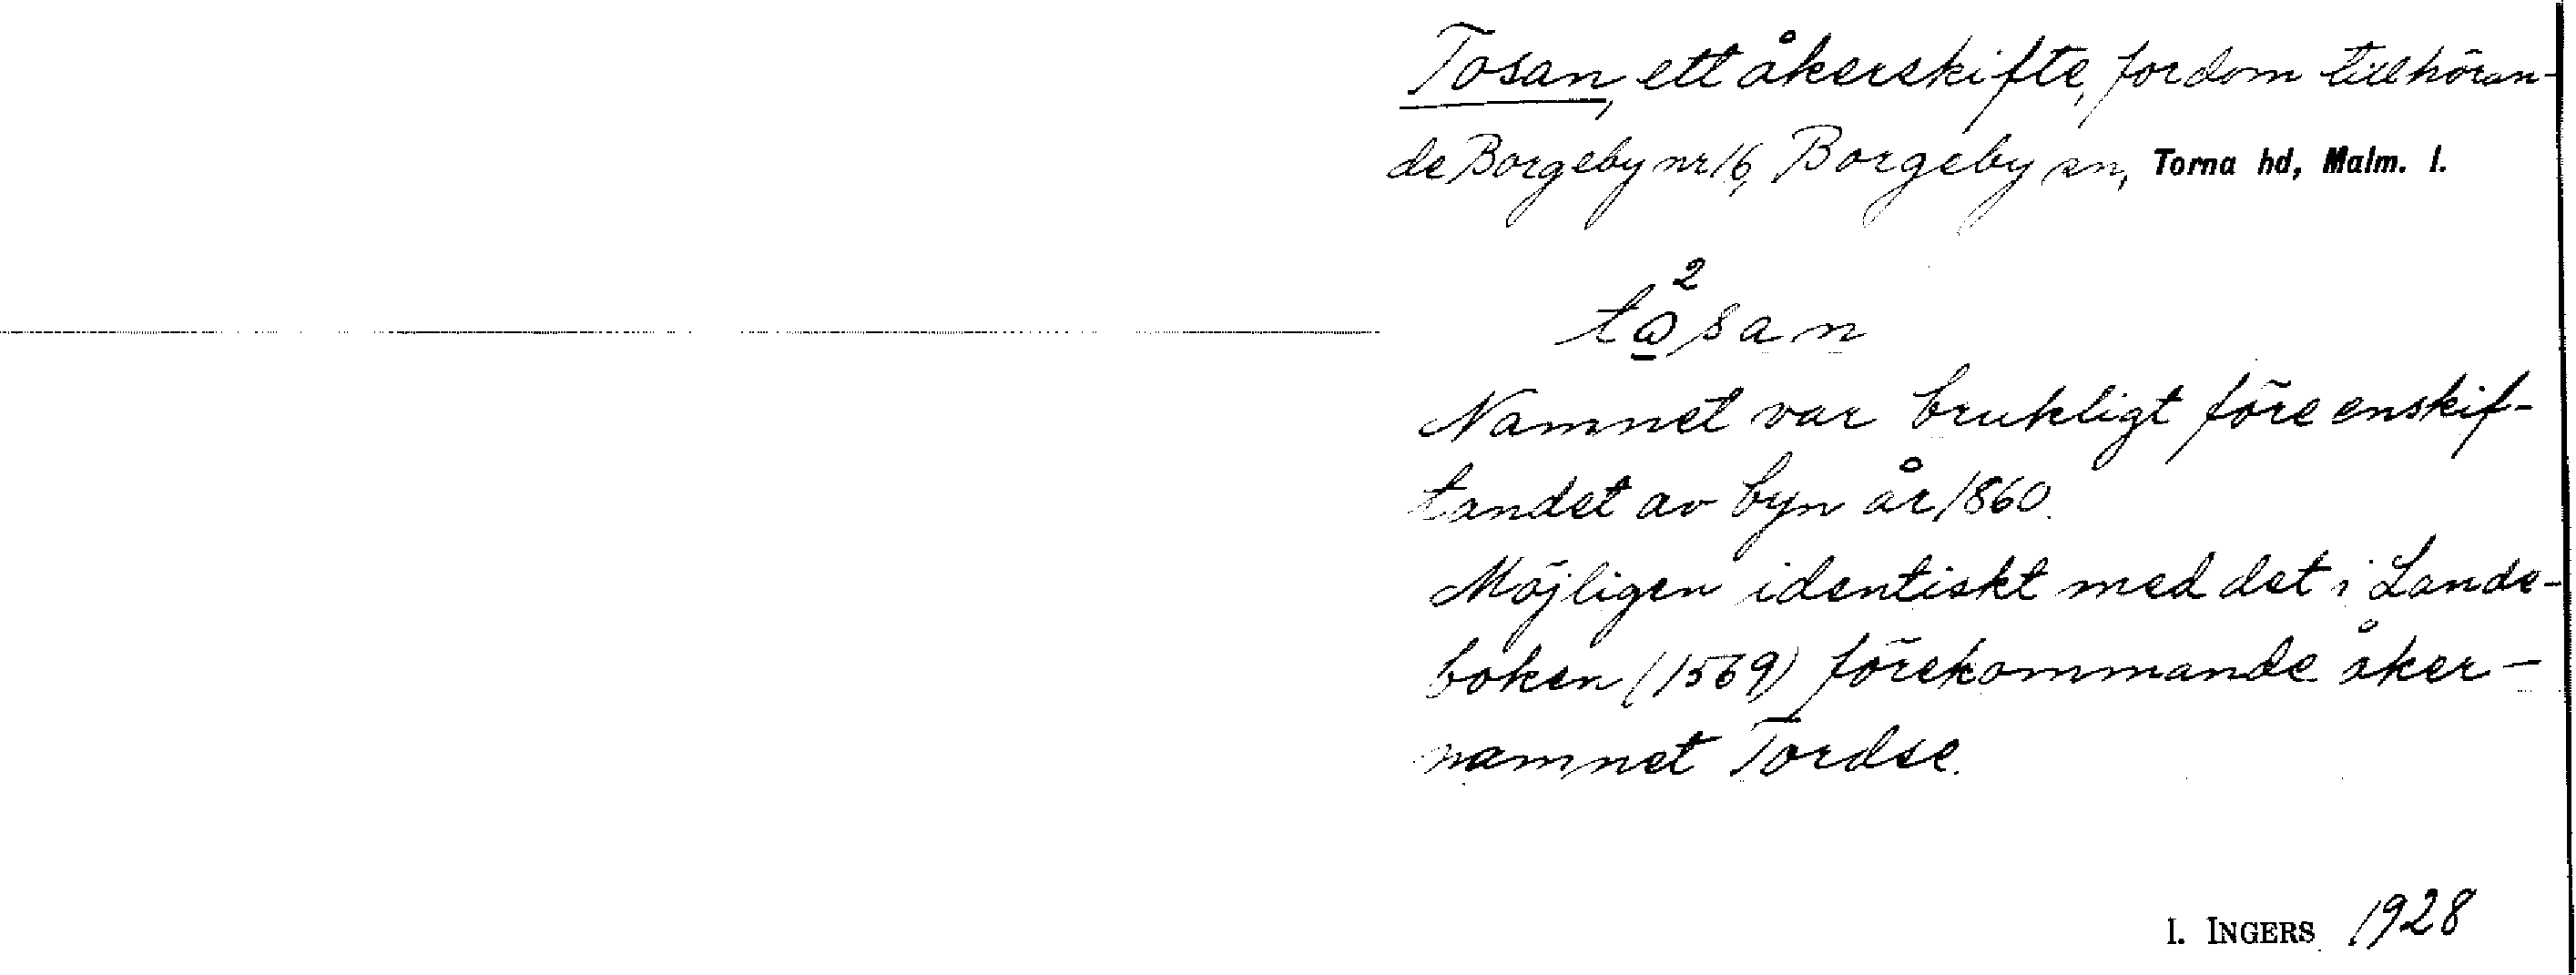 Tosan, ett åkerskifte, fordom tillhöran-
de Borgeby nr 16, Borgeby sn, Torna hd, Malm. l.
2
tɷsan
Namnet var brukligt före enskif-
tandet av byn år 1860.
Möjligen identiskt med det i Lande-
boken (1569) förekommande åker-
namnet Tordse.
I. INGERS 1928